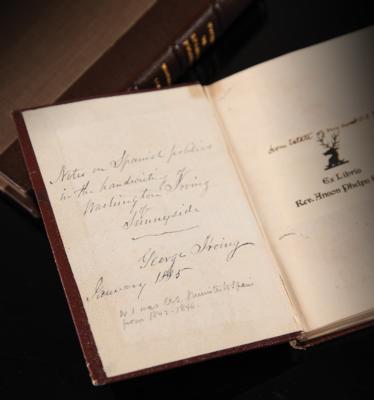 Notes on Spanish politics
in the handwriting of
Washington Irving
of
Sunnyside
George Irving
January
W. I. was U.S. Minister to Spain
from 1842-1846.
from estate of
Ex Libris
Rev. Anson Phelps